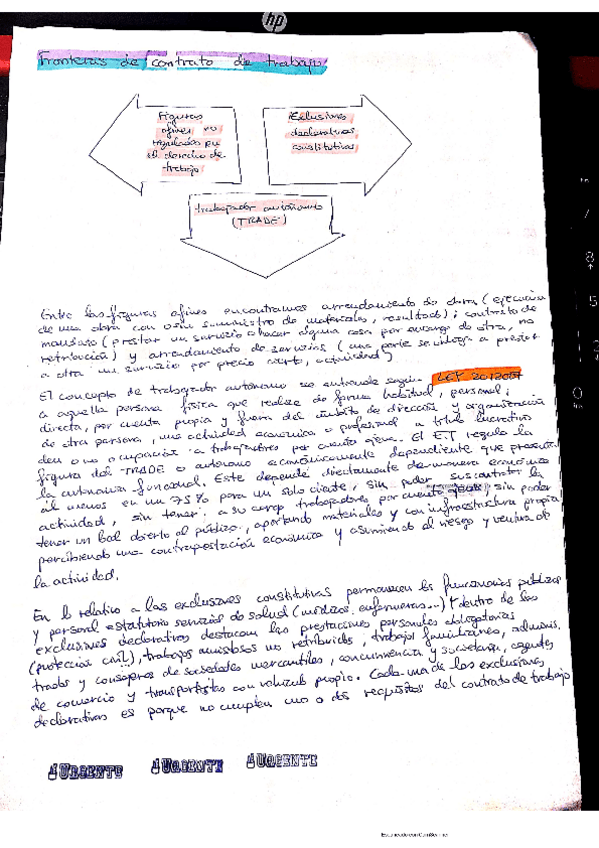 hp
Fronteras de contrato de trabajo
Figuras
afines no
reguladas por
el derecho de
trabajo
Exclusiones
declarativas
constitutivas
trabajador autónomo
(TRADE)
Entre las figuras afines encontramos arrendamiento de obra (ejecución
de una obra con o sin suministro de materiales, resultado); contrato de
mandato (prestar un servicio o hacer alguna cosa por encargo de otra, no
retribución) y arrendamiento de servicios (una parte se obliga a prestar
a otra un servicio por precio cierto, actividad)
El concepto de trabajador autónomo se entiende según LEY 20/2007
a aquella persona física que realice de forma habitual, personal,
directa, por cuenta propia y fuera del ámbito de dirección y organización
de otra persona, una actividad económica o profesional a título lucrativo
den o no ocupación a trabajadores por cuenta ajena. El ET regula la
figura del TRADE o autónomo económicamente dependiente que presenta
la autonomía funcional. Este depende directamente de manera económica
al menos en un 75% para un solo cliente, sin poder subcontratar la
actividad, sin tener a su cargo trabajadores por cuenta ajena, sin poder
tener un local abierto al público, aportando materiales y con infraestructura propia
percibiendo una contraprestación económica y asumiendo el riesgo y ventura de
la actividad.
En lo relativo a las exclusiones constitutivas permanecen los funcionarios públicos
y personal estatutario servicios de salud (médicos, enfermeros...) dentro de las
exclusiones declarativas destacan las prestaciones personales obligatorias
(protección civil), trabajos amistosos no retribuidos, trabajos familiares, adminis.
tradores y consejeros de sociedades mercantiles, agentes
de comercio y transportistas con vehículo propio. Cada una de las exclusiones
declarativas es porque no cumplen uno o dos requisitos del contrato de trabajo
URGENTE URGENTE URGENTE
Escaneado con CamScanner